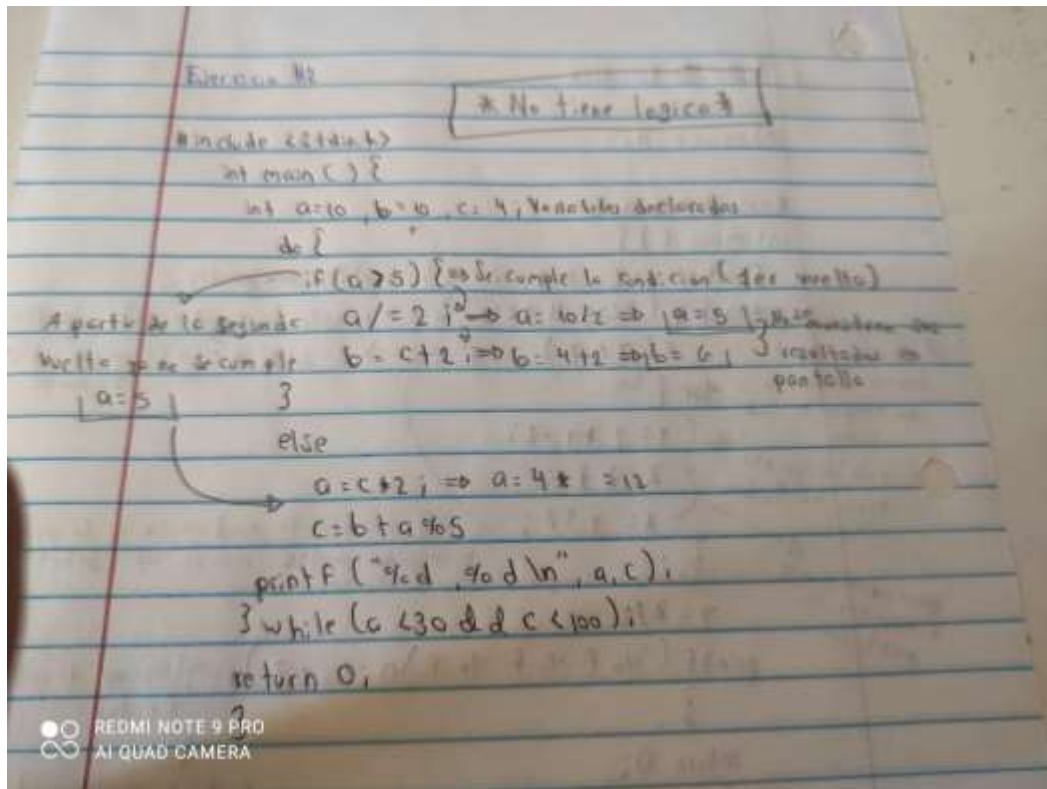 Ejercicio #2
* No tiene logica *
#include <stdio.h>
int main ( ) {
int a=10 , b=10 , c= 4 ; Variables declaradas
do {
if (a>5) { => Se cumple la condicion ( 1er vuelta)
A partir de la segunda
vuelta no se cumple
a=5
a/= 2 ; => a= 10/2 => a=5
b = c+2 ; => b= 4+2 => b= 6 ;
resultados en
pantalla
}
else
a=c*2 ; => a=4* =12
c=b+a%5
printf ("%d ,%d \n", a,c);
} while (a <30 && c <100);
return 0;
}
REDMI NOTE 9 PRO
AI QUAD CAMERA